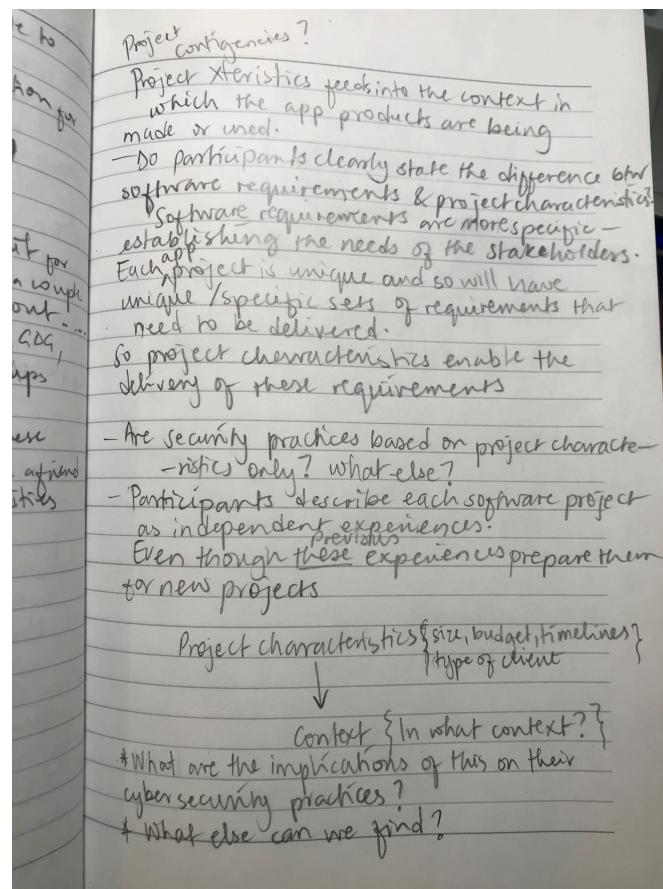 e to
tion for
ut for
a couple
out....
GDG,
ups
ese
a friend
ities
Project
contigencies?
Project Xteristics feeds into the context in
which the app products are being
made or used.
- Do participants clearly state the difference btw
software requirements & project characteristics?
Software requirements are more specific -
establishing the needs of the stakeholders.
Each app project is unique and so will have
unique / specific sets of requirements that
need to be delivered.
So project characteristics enable the
delivery of these requirements
- Are security practices based on project characte-
-ristics only? what else?
- Participants describe each software project
as independent experiences.
Even though these previous experiences prepare them
for new projects
Project characteristics {size, budget, timelines}
{type of client}
Context {In what context?}
*What are the implications of this on their
cybersecurity practices?
* What else can we find?